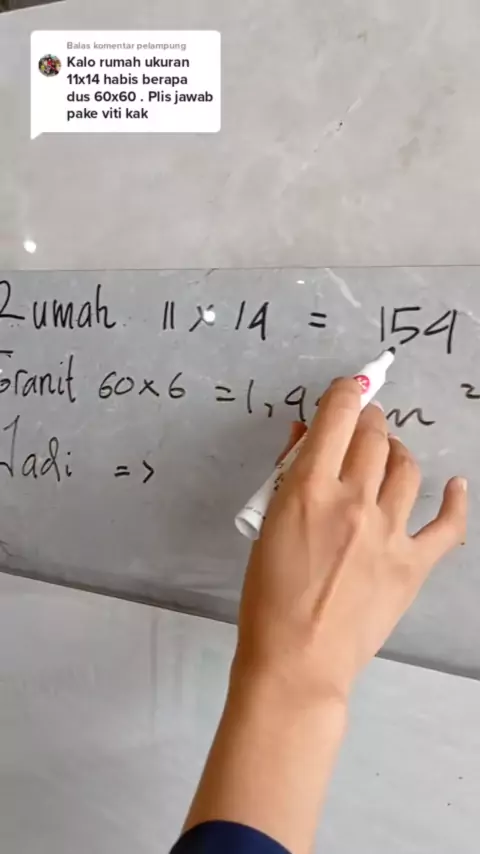 Balas komentar pelampung
Kalo rumah ukuran
11x14 habis berapa
dus 60x60 . Plis jawab
pake viti kak
Rumah 11 x 14 = 154
Granit 60 x 6 = 1,4 m²
Jadi =>